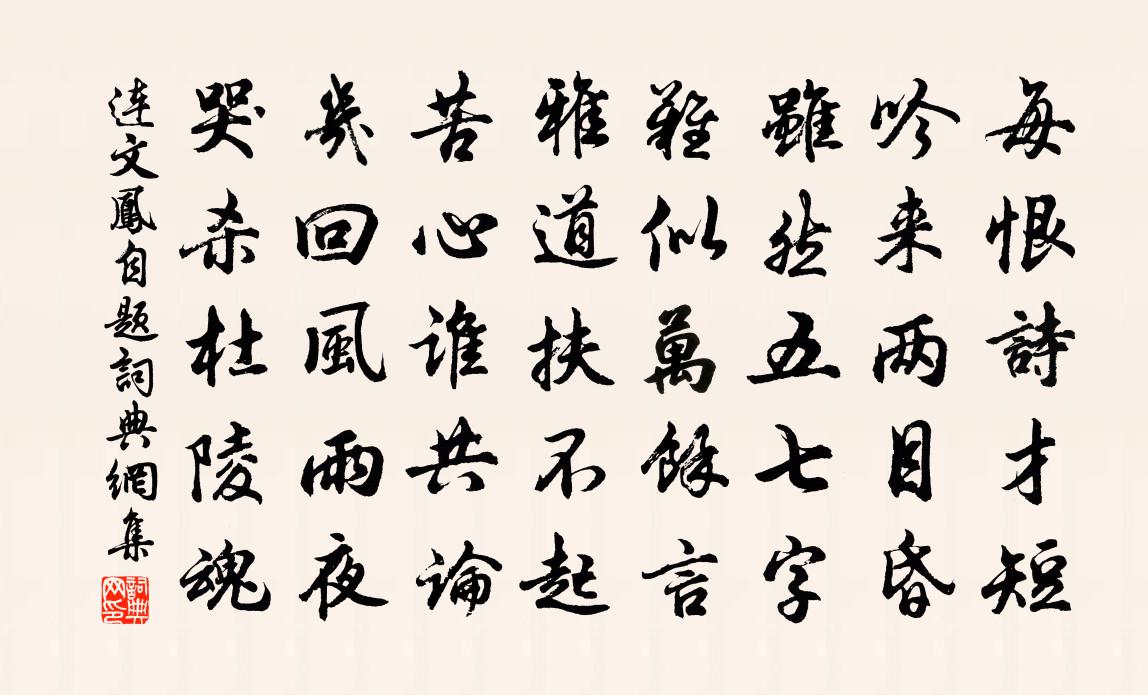 每恨詩才短
吟来两目昏
雖然五七字
難似萬餘言
雅道扶不起
苦心誰共論
幾回風雨夜
哭杀杜陵魂
連文鳳自題詞典網集
詞典网印